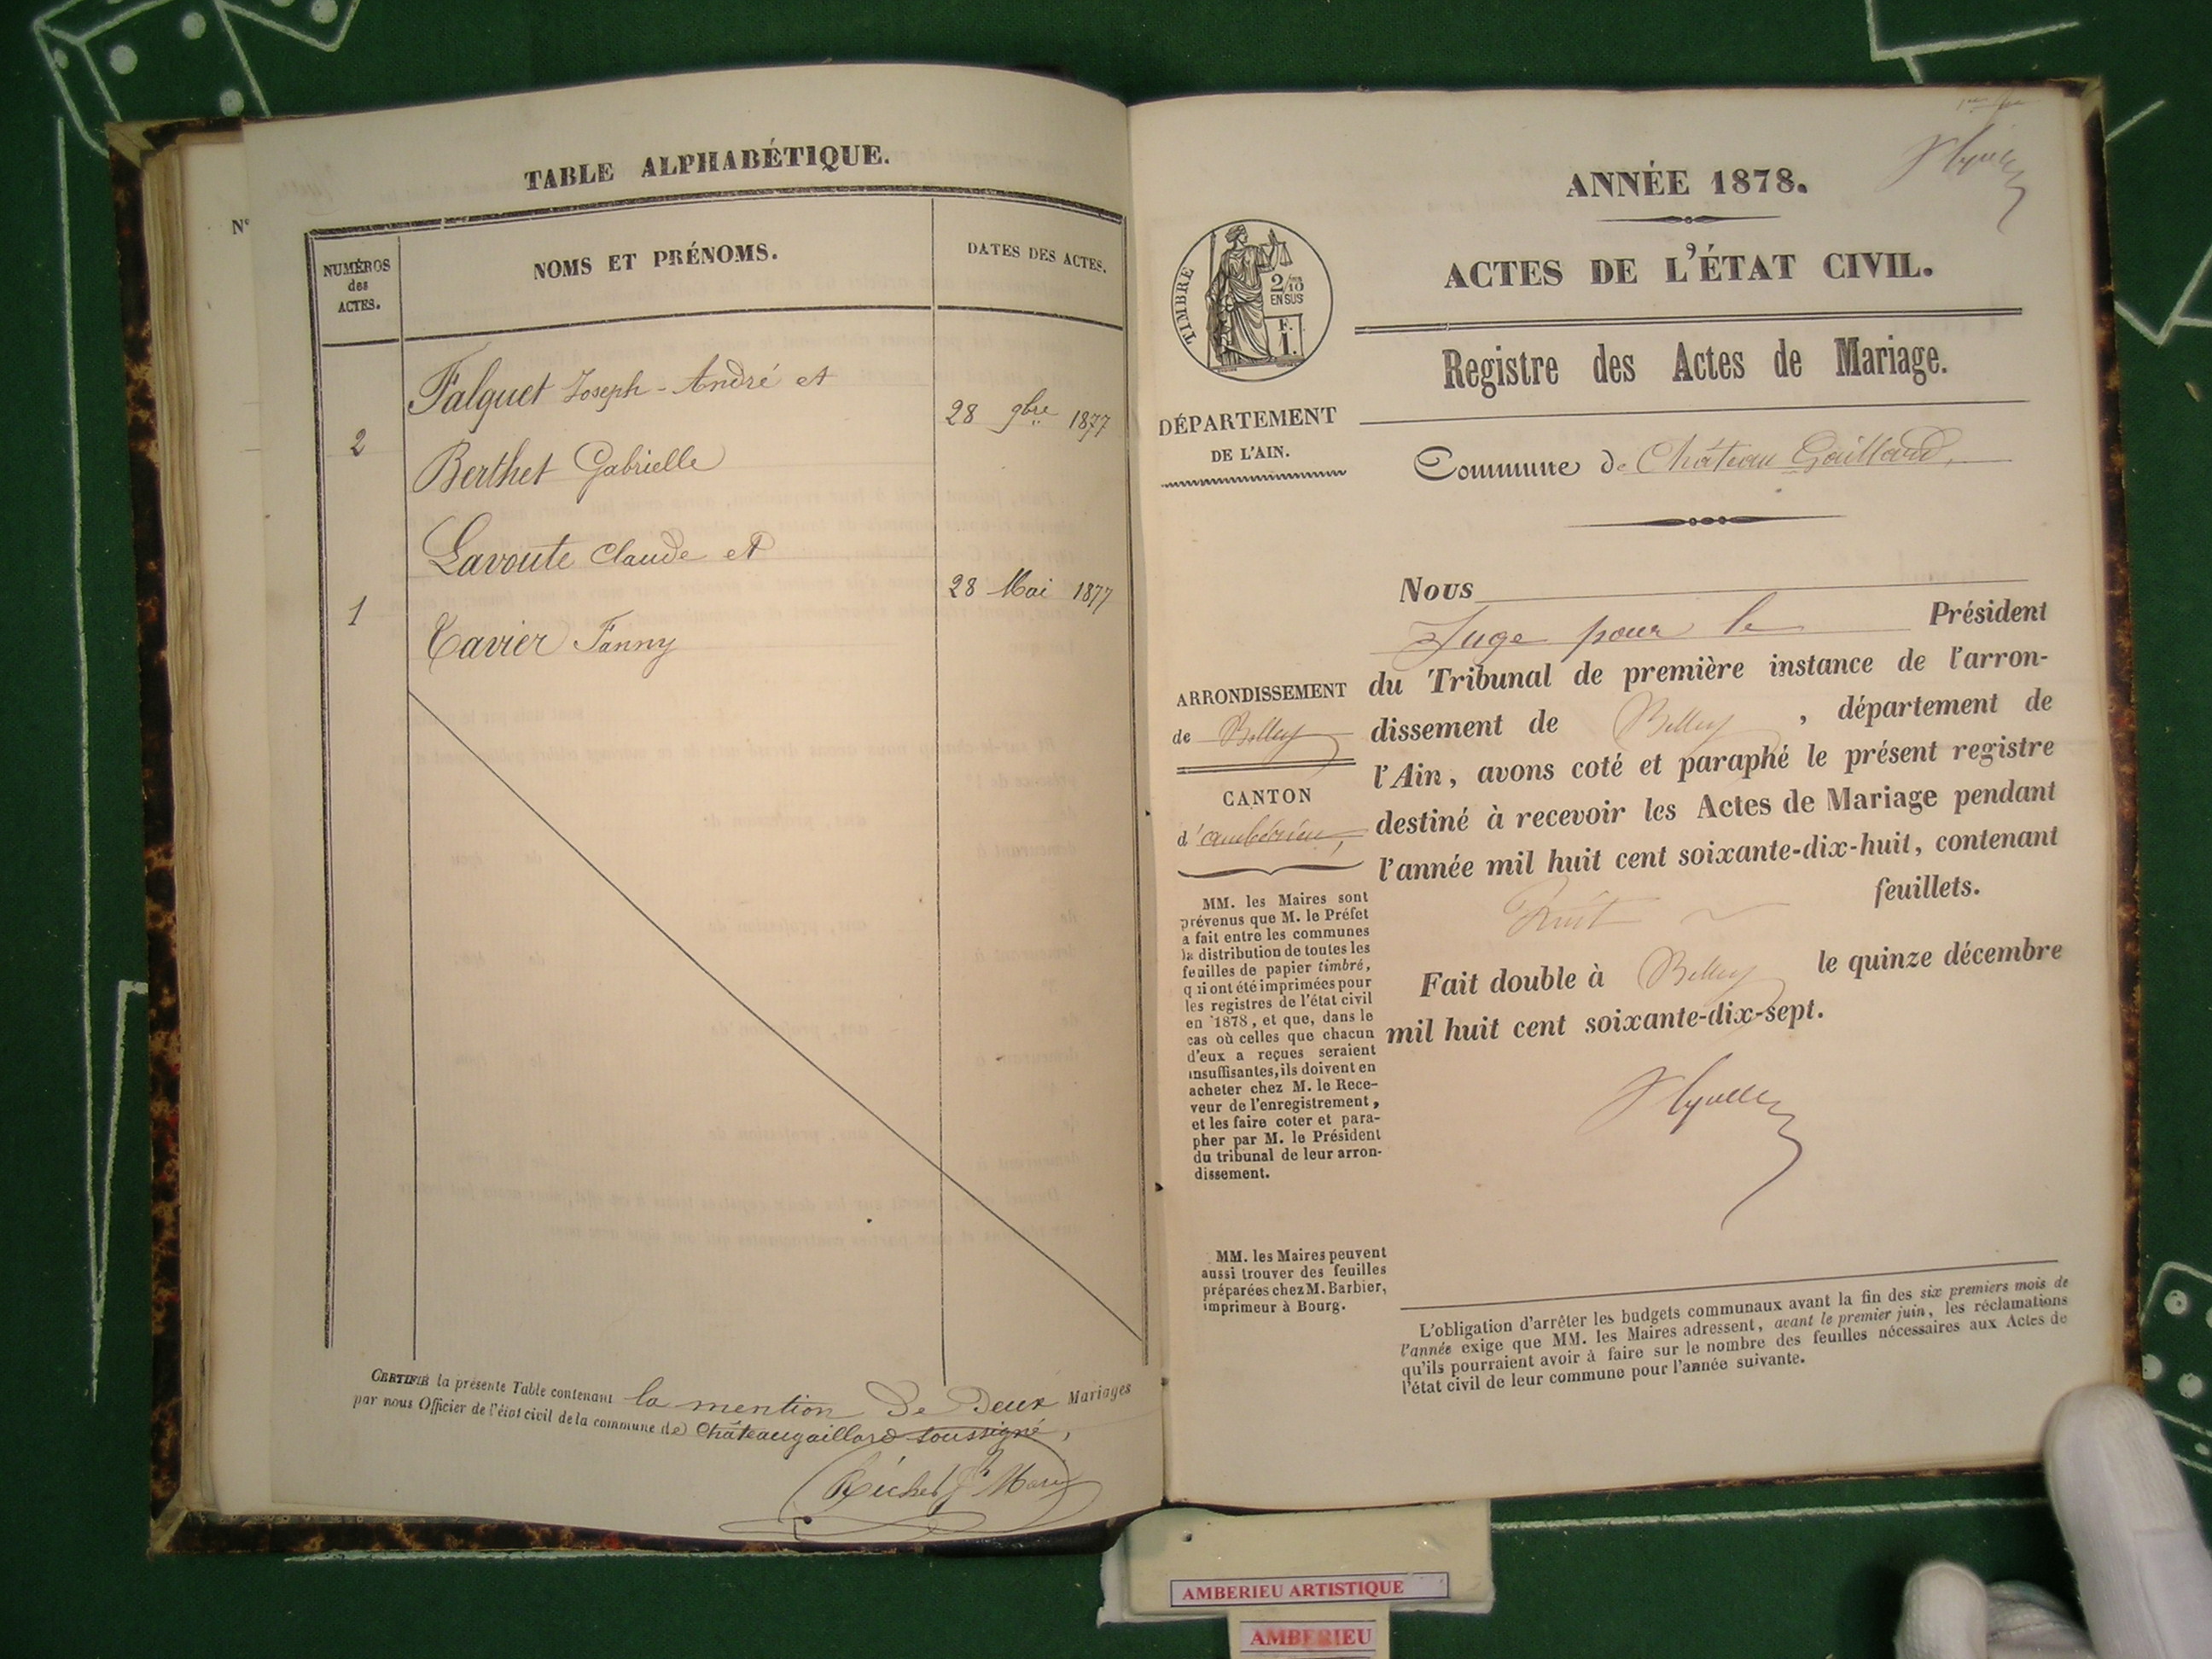 TABLE ALPHABÉTIQUE.
N°
NUMÉROS
des
ACTES.
NOMS ET PRÉNOMS.
DATES DES ACTES.
Falquet Joseph-André et
2
28 9bre 1877
Berthet Gabrielle
Lavoute Claude et
1
28 Mai 1877
Tavier Fanny
CERTIFIÉ la présente Table contenant la mention de Deux Mariages
par nous Officier de l'état civil de la commune de Châteaugaillard soussigné,
ANNÉE 1878.
ACTES DE L'ÉTAT CIVIL.
TIMBRE
2/10
EN SUS
F.
1.
Registre des Actes de Mariage.
DÉPARTEMENT
DE L'AIN.
Commune de Château Gaillard,
Nous
Juge pour le Président
du Tribunal de première instance de l'arron-
dissement de Belley, département de
l'Ain, avons coté et paraphé le présent registre
destiné à recevoir les Actes de Mariage pendant
l'année mil huit cent soixante-dix-huit, contenant
Huit feuillets.
Fait double à Belley le quinze décembre
mil huit cent soixante-dix-sept.
ARRONDISSEMENT
de Belley
CANTON
d'ambérieu,
MM. les Maires sont
prévenus que M. le Préfet
a fait entre les communes
la distribution de toutes les
feuilles de papier timbré,
qui ont été imprimées pour
les registres de l'état civil
en 1878, et que, dans le
cas où celles que chacun
d'eux a reçues seraient
insuffisantes, ils doivent en
acheter chez M. le Rece-
veur de l'enregistrement,
et les faire coter et para-
pher par M. le Président
du tribunal de leur arron-
dissement.
MM. les Maires peuvent
aussi trouver des feuilles
préparées chez M. Barbier,
imprimeur à Bourg.
L'obligation d'arrêter les budgets communaux avant la fin des six premiers mois de
l'année exige que MM. les Maires adressent, avant le premier juin, les réclamations
qu'ils pourraient avoir à faire sur le nombre des feuilles nécessaires aux Actes de
l'état civil de leur commune pour l'année suivante.
AMBERIEU ARTISTIQUE
AMBERIEU